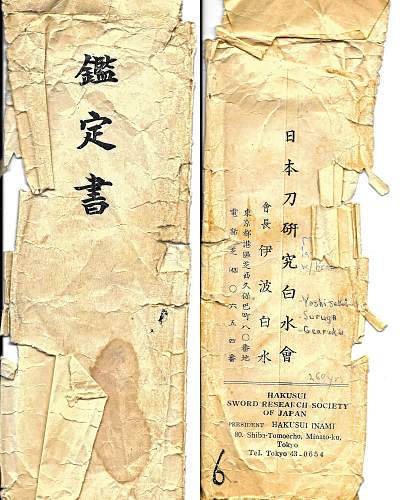 鑑定書
日本刀研究白水會
會長 伊波白水
東京都港區芝西久保巴町八〇番地
電話芝 〇六五四番
-Suruga
HAKUSUI
SWORD RESEARCH SOCIETY
OF JAPAN
PRESIDENT HAKUSUI INAMI
80, Shiba-Tomoecho, Minato-ku,
Tokyo
Tel. Tokyo 43-0654
6